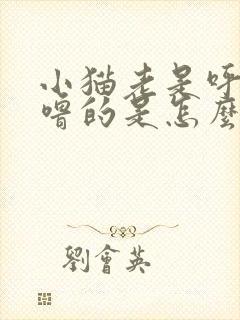 小猫老是呼
噜的是怎麼
劉會英